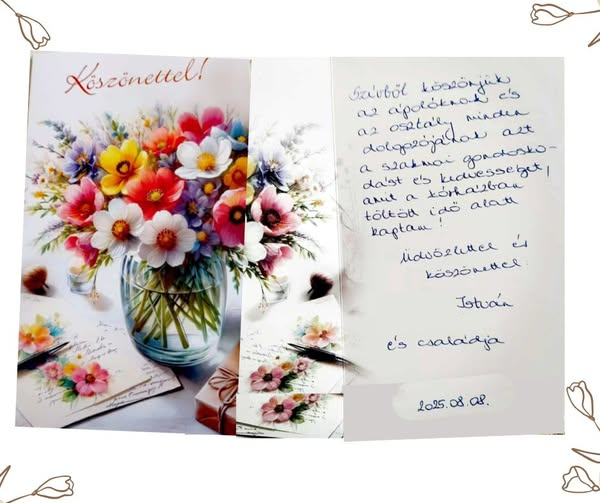 Köszönettel!
Szívből köszönjük
az ápolóknak és
az osztály minden
dolgozójának azt
a szakmai gondosko-
dást és kedvességet,
amit a kórházban
töltött idő alatt
kaptam!
Üdvözlettel és
köszönettel:
István
és családja
2025.08.08.